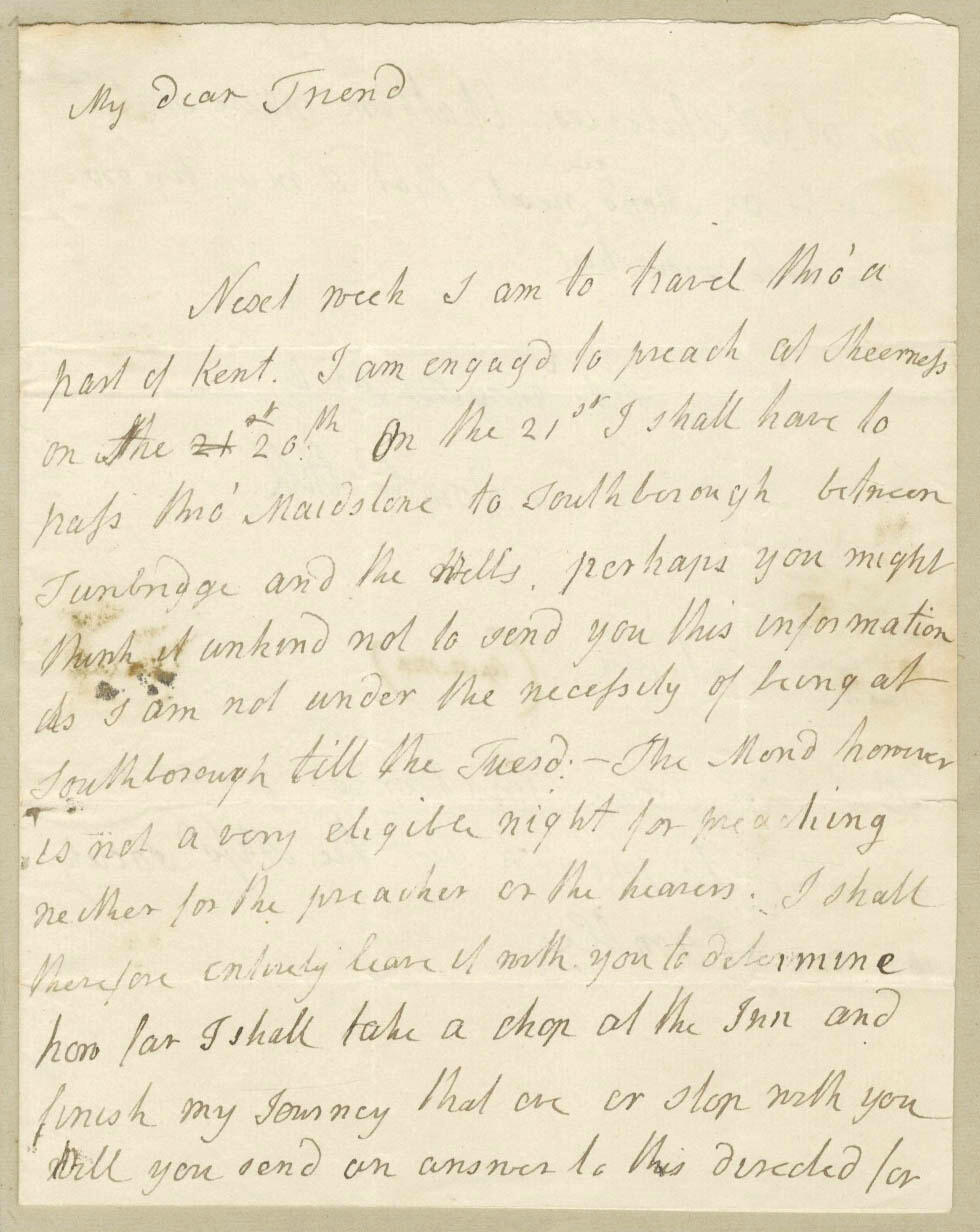 My dear Friend
Next week I am to travel thro' a
part of Kent. I am engagd to preach at Sheerness
on the 21st 20th On the 21st I shall have to
pass thro' Maidstone to Southborough between
Tunbridge and the Wells. perhaps you might
think it unkind not to send you this information
As I am not under the necessity of being at
Southborough till the Tuesd: - The Mond however
is not a very eligible night for preaching
neither for the preacher or the hearers. I shall
therefore entirely leave it with you to determine
how far I shall take a chop at the Inn and
finish my Journey that eve or stop with you
Will you send an answer to this directed for